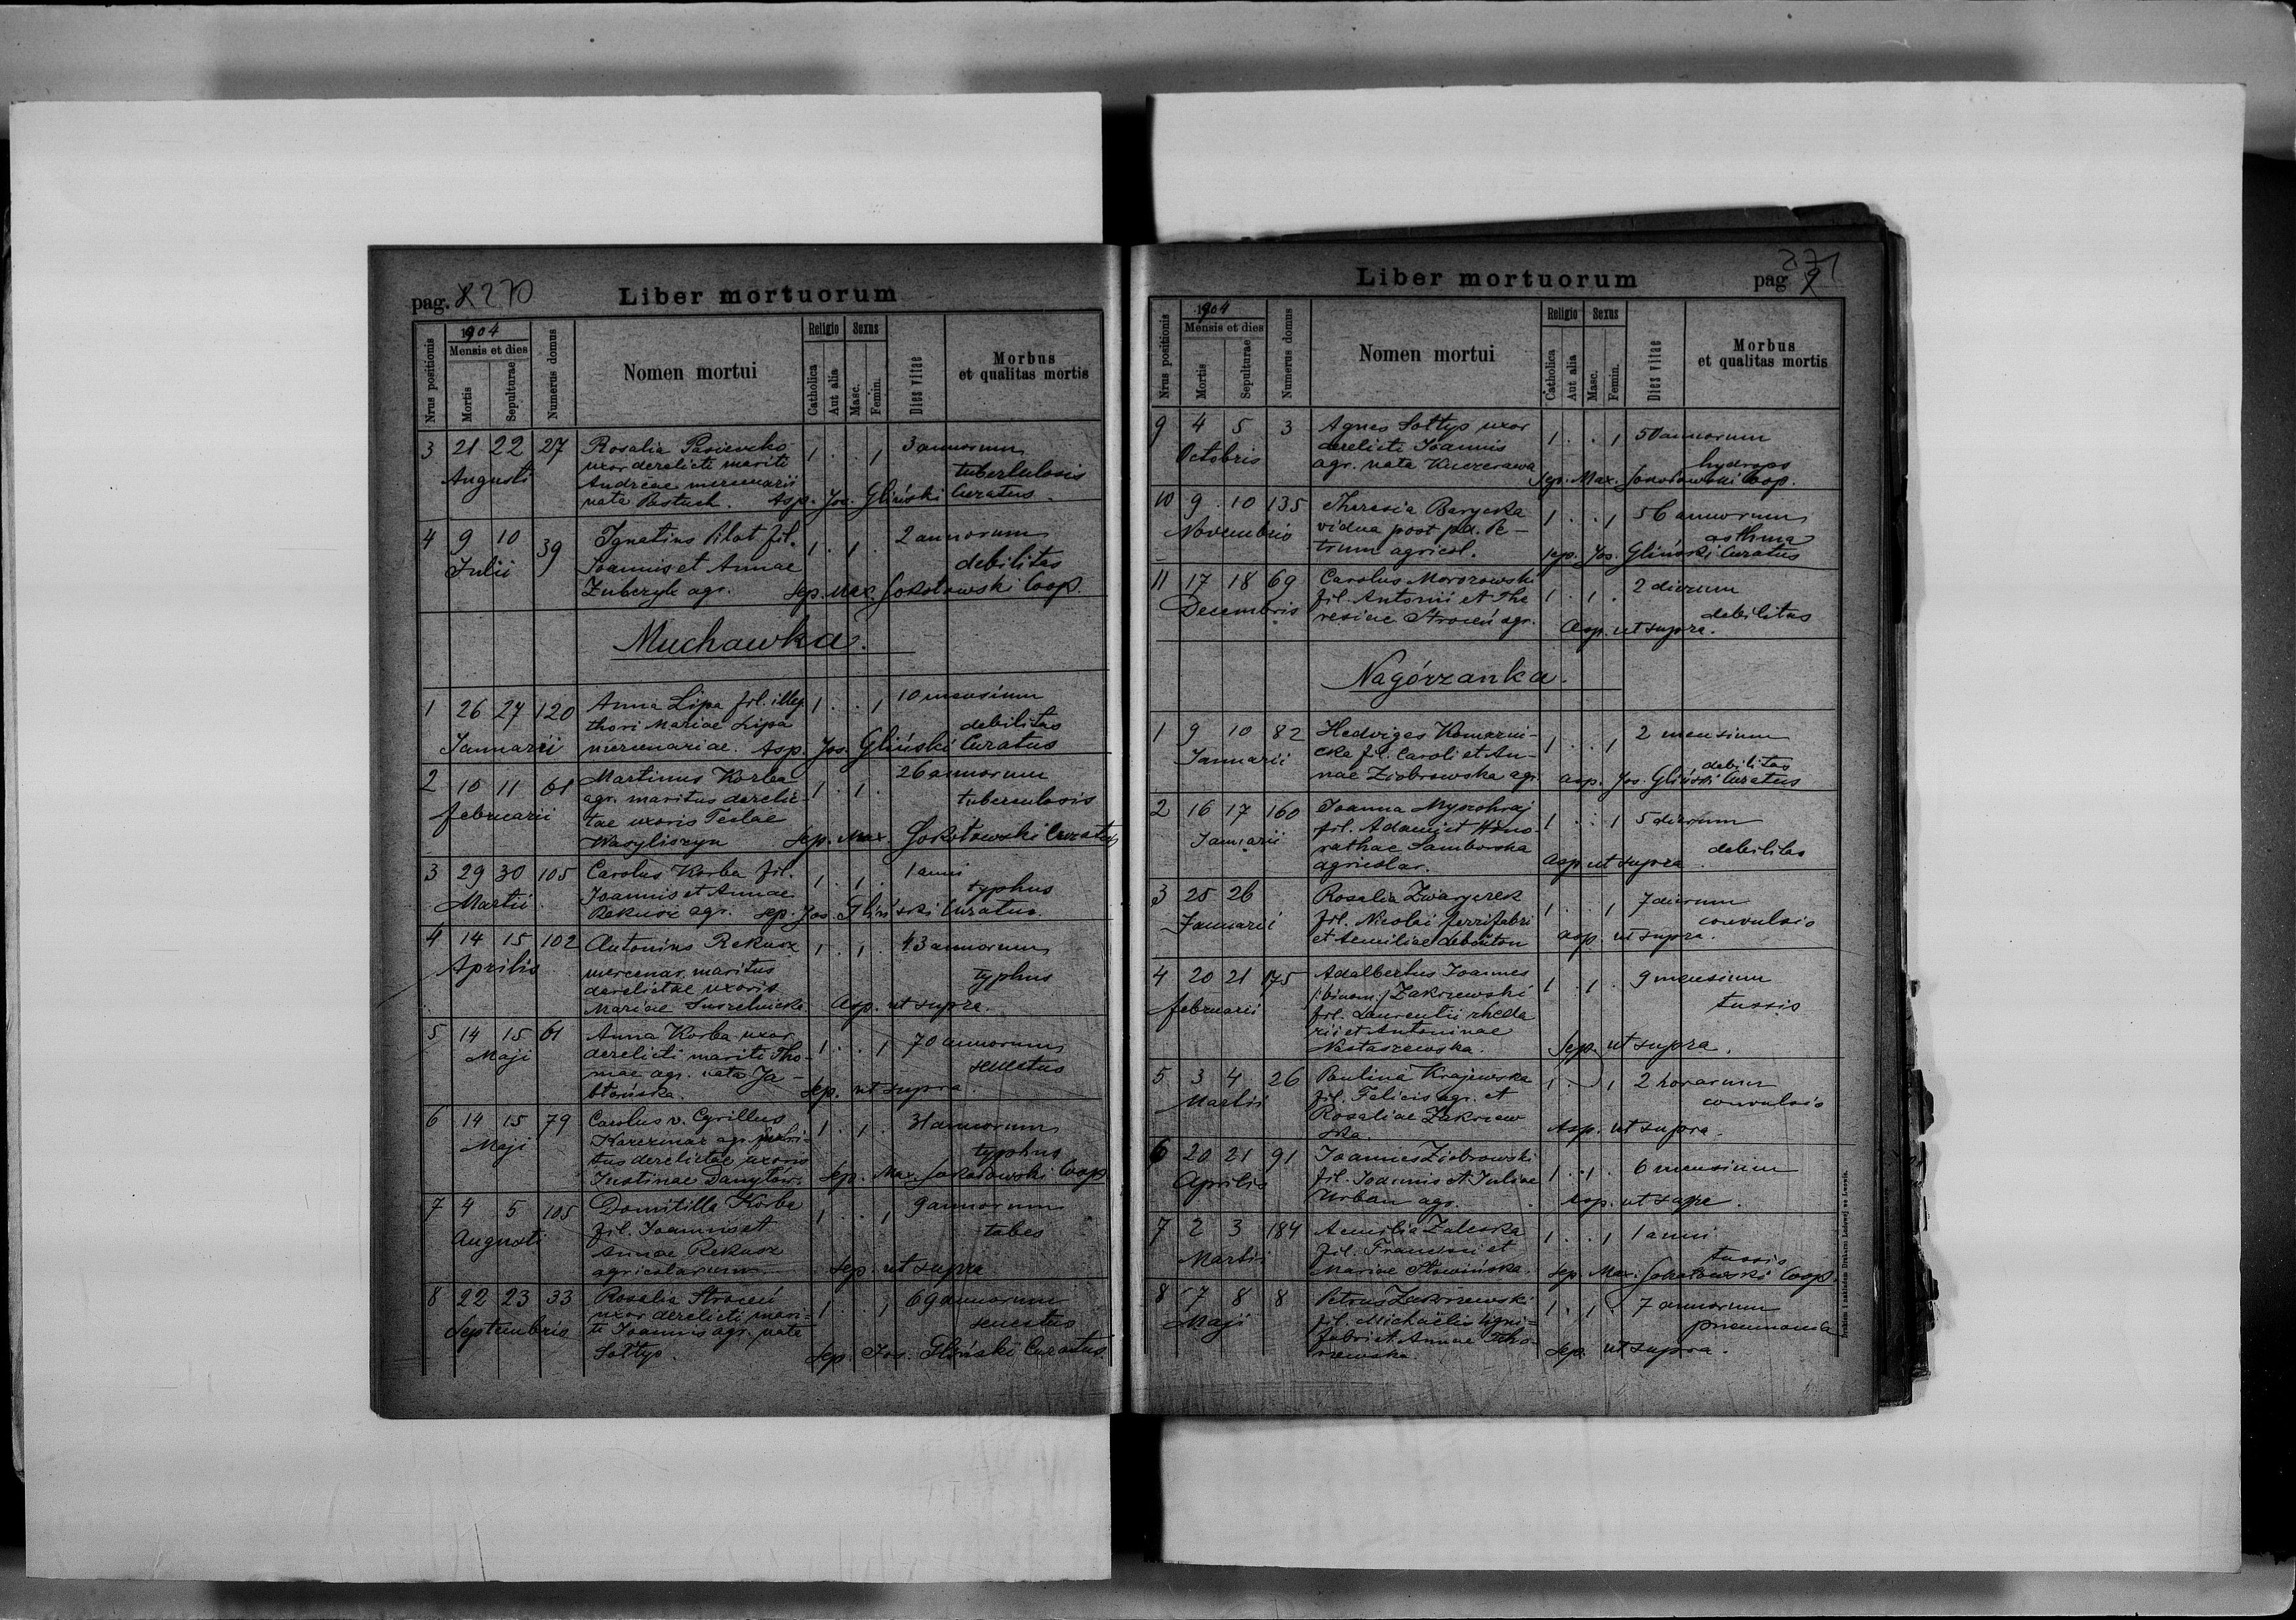 pag. 8 270
Liber mortuorum
Nrus positionis
1904
Mensis et dies
Mortis
Sepulturae
Numerus domus
Nomen mortui
Religio
Sexus
Catholica
Aut alia
Masc.
Femin.
Dies vitae
Morbus
et qualitas mortis
3 21 22 27 Rosalia 1 . . 1 3 annorum
Augusti uxor derelicti mariti tuberculosis
Andreae mercenarii
nata Pastuch. Asp. Jos. Gliński Curatus.
4 9 10 39 Ignatius Pilat fil. 1 . 1 . 2 annorum
Julii Joannis et Annae debilitas
agr. Sep. Max. Sokołowski Coop.
Muchawka.
1 26 27 120 Anna Lipa fil. illeg. 1 . . 1 10 mensium
thori Mariae Lipa debilitas
Januarii mercenariae. Asp. Jos. Gliński Curatus
2 10 11 61 Martinus Korba 1 . 1 . 26 annorum
Februarii agr. maritus derelic- tuberculosis
tae uxoris Teclae
Wasyliszyn Sep. Max. Sokołowski Curatus
3 29 30 105 Carolus Korba fil. 1 . 1 . 1 anni
Martii Joannis et Annae typhus
Rekusz agr. Sep. Jos. Gliński Curatus.
4 14 15 102 Antonius Rekusz 1 . 1 . 43 annorum
Aprilis mercenar. maritus typhus
derelictae uxoris
Mariae Asp. ut supra.
5 14 15 61 Anna Korba uxor 1 . . 1 70 annorum
Maji derelicti mariti Tho- senectus
mae agr. nata Ja-
błońska. Sep. ut supra.
6 14 15 79 Carolus v. Cyrillus 1 . 1 . 31 annorum
Maji Karczmar agr. mari- typhus
tus derelictae uxoris
Justinae Danyłów. Sep. Max. Sokołowski Coop
7 4 5 105 Domitilla Korba 1 . . 1 9 annorum
Augusti fil. Joannis et tabes
Annae Rekusz
agricolarum Sep. ut supra
8 22 23 33 Rosalia Stroceń 1 . . 1 69 annorum
Septembris uxor derelicti mari- senectus
ti Joannis agr. nata
Sołtys. Sep. Jos. Gliński Curatus.
Liber mortuorum
pag. 9 271
Nrus positionis
1904
Mensis et dies
Mortis
Sepulturae
Numerus domus
Nomen mortui
Religio
Sexus
Catholica
Aut alia
Masc.
Femin.
Dies vitae
Morbus
et qualitas mortis
9 4 5 3 Agnes Sołtys uxor 1 . . 1 50 annorum
Octobris derelicti Joannis hydrops
agr. nata Sep. Max. Sokołowski Coop.
10 9 10 135 Theresia Barycka 1 . . 1 56 annorum
Novembris vidua post pd. Pe- asthma
trum agricol. Sep. Jos. Gliński Curatus
11 17 18 69 Carolus Morozowski 1 . 1 . 2 dierum
Decembris fil. Antonii et The debilitas
resiae Stroceń agr. Asp. ut supra.
Nagórzanka.
1 9 10 82 Hedviges Komarni- 1 . . 1 2 mensium
Januarii cka fil. Caroli et An- debilitas
nae Ziobrowska agr. Asp. Jos. Gliński Curatus
2 16 17 160 Joanna 1 . . 1 5 dierum
Januarii fil. Adami et Hono- debilitas
rathae Samborska
agricolar. Asp. ut supra.
3 25 26 Rosalia Zwaryczek 1 . . 1 7 dierum
Januarii fil. Nicolai ferrifabri convulsio
et Aemiliae Asp. ut supra.
4 20 21 175 Adalbertus Joannes 1 . 1 . 9 mensium
Februarii /:binom:/ Zakrzewski tussis
fil. Laurentii rheda
rii et Antoninae
Nastaszewska. Sep. ut supra.
5 3 4 26 Paulina Krajewska 1 . . 1 2 horarum
Martii fil. Felicis agr. et convulsio
Rosaliae Zakrzew
ska. Asp. ut supra.
6 20 21 91 Joannes Ziobrowski 1 . 1 . 6 mensium
Aprilis fil. Joannis et Juliae
Urban agr. Asp. ut supra.
7 2 3 184 Aemilia Zaleska 1 . . 1 1 anni
Martii fil. Francisci et tussis
Mariae Słowińska. Sep. Max. Sokołowski Coop.
8 7 8 8 Petrus Zakrzewski 1 . 1 . 7 annorum
Maji fil. Michaëlis ligni- pneumonia
fabri et Annae Tcho-
rzewska. Sep. ut supra.
Drukiem i nakładem Drukarni Ludowej we Lwowie.